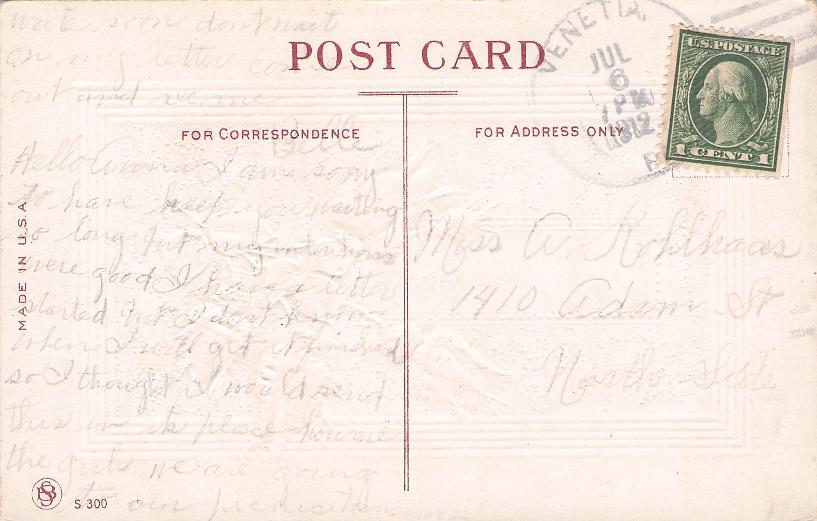 write soon don't wait
on my letter come
out and see me
Belle
POST CARD
FOR CORRESPONDENCE
FOR ADDRESS ONLY
VENETIA,
JUL
6
1912
U.S. POSTAGE
1 CENT 1
Hello Anna I am sorry
to have keep you waiting
so long but my intentions
were good I have a letter
started but I don't know
when I will get it finished
so I thought I would send
this in its place how are
the girls we are going
to our picnic
Miss A. Kohlhaas
1410 Adams St
North Side
MADE IN U.S.A.
S 300